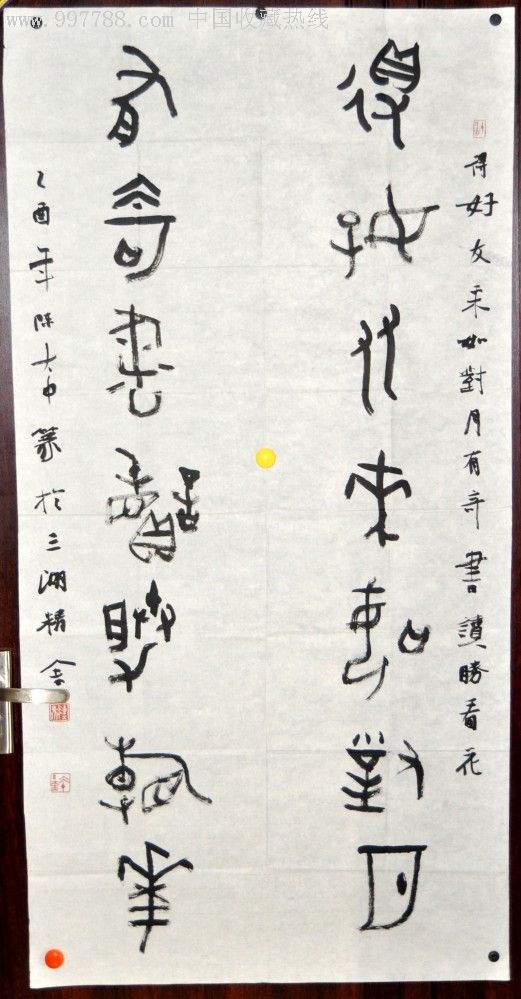 www.997788.com 中国收藏热线
得好友来如對月有奇書讀勝看花
得好友來如對月
有奇書讀勝看花
乙酉年陈大中篆於三湖精舍